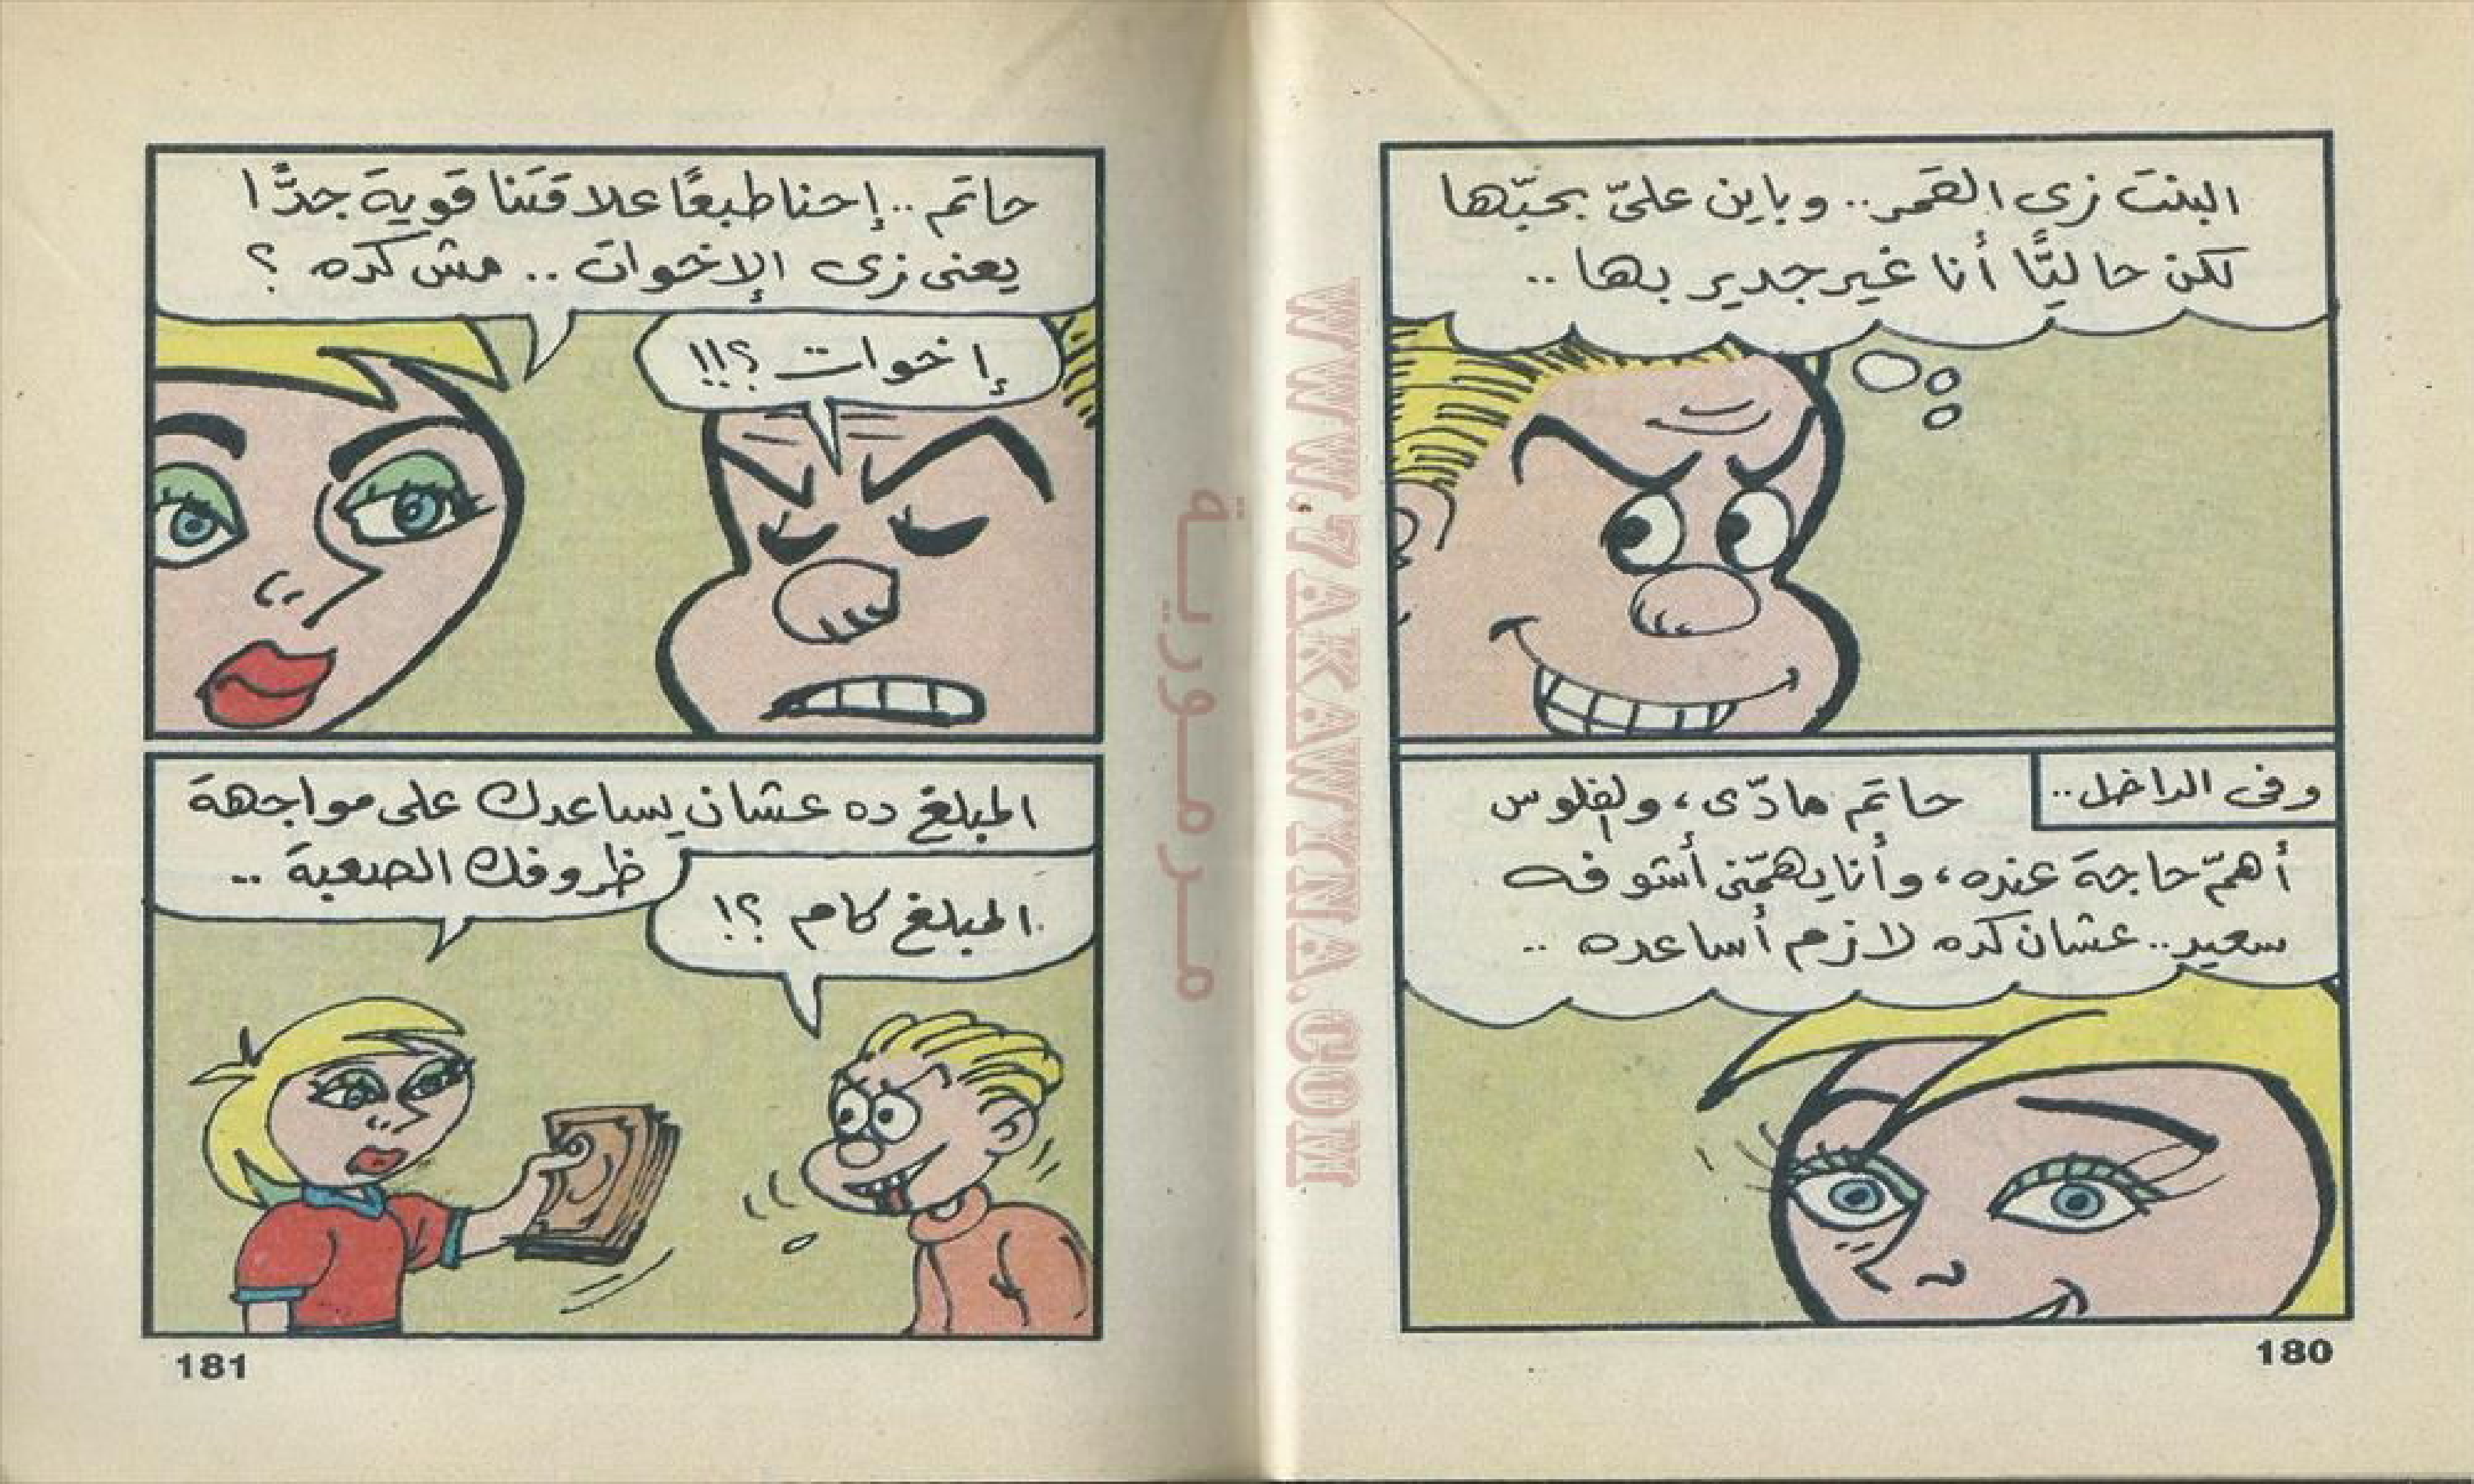 البنت زى القمر.. وباين علىّ بحبّها
لكن حاليًّا أنا غير جدير بها..
وفى الداخل..
حاتم مادّى، والفلوس
أهمّ حاجة عنده، وأنا يهمّنى أشوفه
سعيد.. عشان كده لازم أساعده ..
180
حاتم.. إحنا طبعًا علاقتنا قوية جدًّا
يعنى زى الإخوات.. مش كده ؟
إخوات ؟!!
المبلغ ده عشان يساعدك على مواجهة
ظروفك الصعبة ..
المبلغ كام ؟!
181
مرمورية
WWW.7AKAWYNA.COM